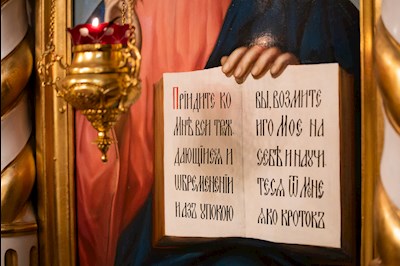 Прїидите ко
мнѣ вси труж
дающїися и
ѡбремененїи
и азъ упокою
вы, возмите
иго мое на
себѣ и научи
теся ѿ мне
яко кротокъ